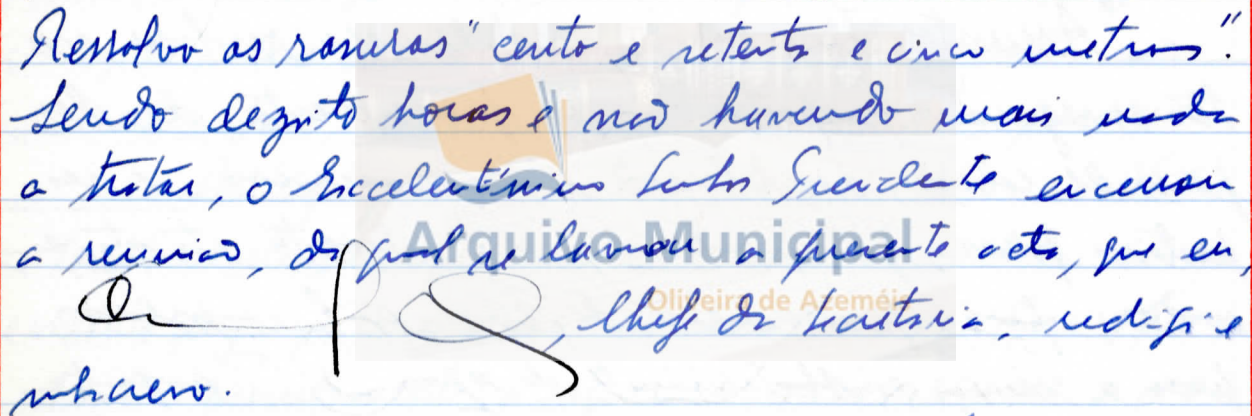 Ressalvo as rasuras "cento e setenta e cinco metros".
Sendo dezoito horas e não havendo mais nada
a tratar, o Excelentíssimo Senhor Presidente encerrou
a reunião, da qual se lavrou a presente acta, que eu,
, Chefe da Secretaria, redigi e
subscrevo.
Arquivo Municipal
Oliveira de Azeméis